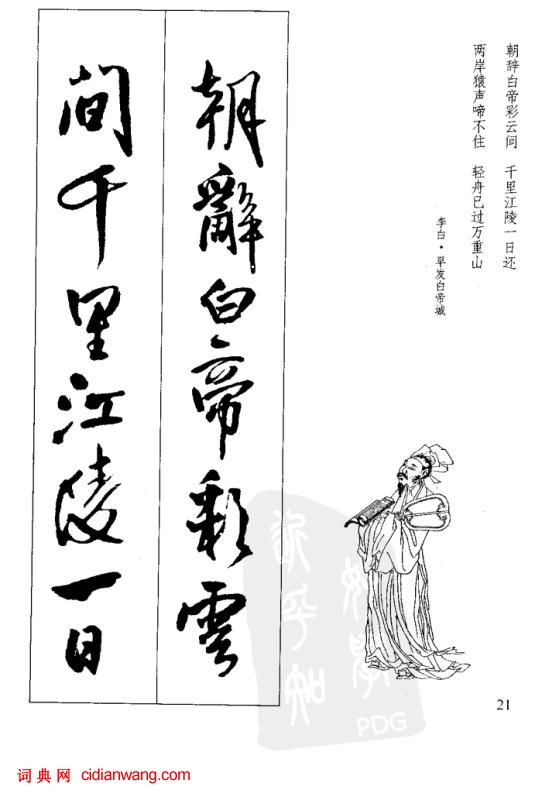 朝辞白帝彩云间 千里江陵一日还
两岸猿声啼不住 轻舟已过万重山
李白·早发白帝城
朝辭白帝彩雲
間千里江陵一日
PDG
21
词典网 cidianwang.com